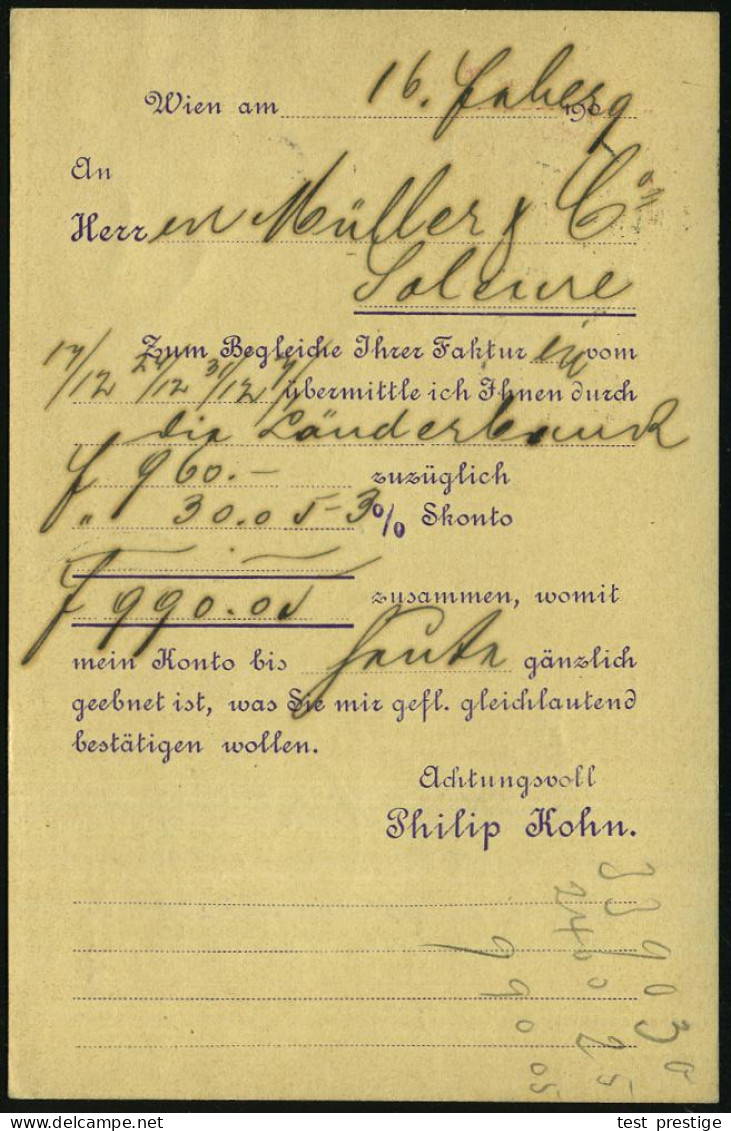 Wien am 16. Feber 1909
An
Herren Müller & Co
Soleure
Zum Begleiche Ihrer Fakturen vom
17/12 24/12 31/12 7/1 übermittle ich Ihnen durch
die Länderbank
f 960.- zuzüglich
" 30.05 - 3% Skonto
f 990.05 zusammen, womit
mein Konto bis heute gänzlich
geebnet ist, was Sie mir gefl. gleichlautend
bestätigen wollen.
Achtungsvoll
Philip Kohn.
990 05
test prestige